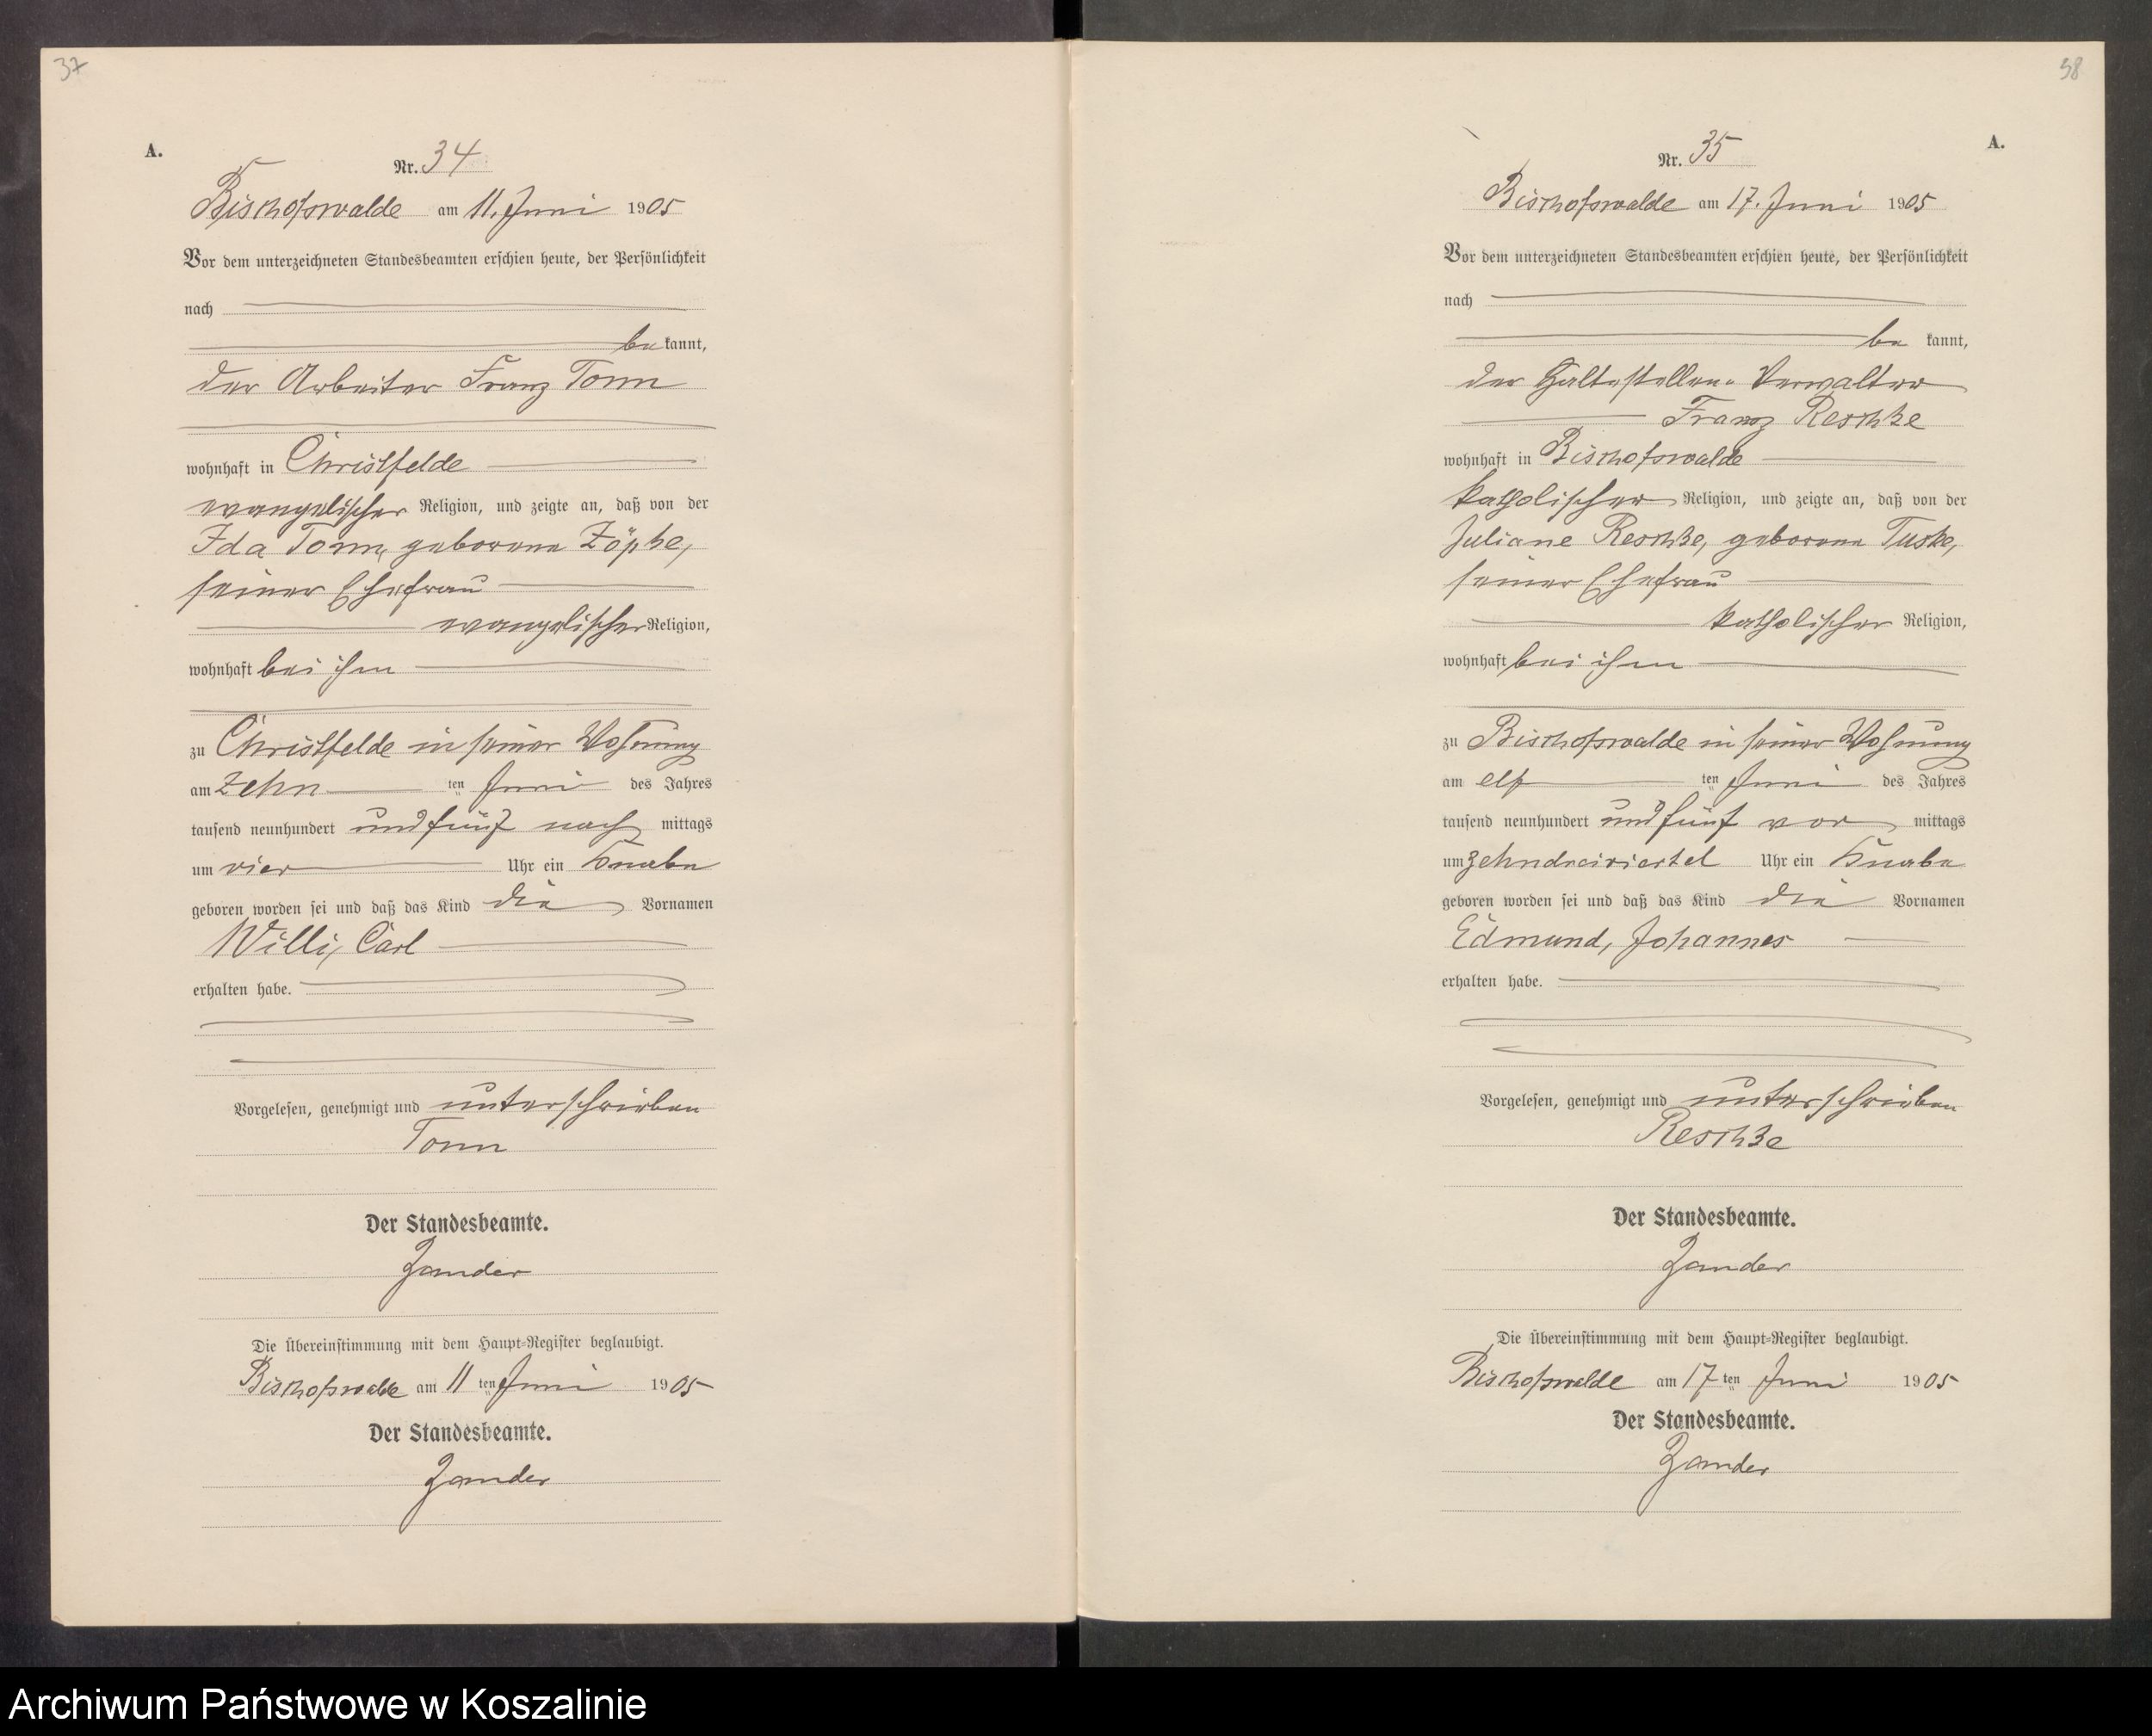 37
A.
Nr. 34
Bischofswalde am 11. Juni 1905
Vor dem unterzeichneten Standesbeamten erschien heute, der Persönlichkeit
nach
be kannt,
der Arbeiter Franz Tonn
wohnhaft in Christfelde
evangelischer Religion, und zeigte an, daß von der
Ida Tonn, geborene Zöpke,
seiner Ehefrau
evangelischer Religion,
wohnhaft bei ihm
zu Christfelde in seiner Wohnung
am zehn ten Juni des Jahres
tausend neunhundert und fünf nach mittags
um vier Uhr ein Knabe
geboren worden sei und daß das Kind die Vornamen
Willi, Carl
erhalten habe.
Vorgelesen, genehmigt und unterschrieben
Tonn
Der Standesbeamte.
Zander
Die Übereinstimmung mit dem Haupt-Register beglaubigt.
Bischofswalde am 11 ten Juni 1905
Der Standesbeamte.
Zander
38
A.
Nr. 35
Bischofswalde am 17. Juni 1905
Vor dem unterzeichneten Standesbeamten erschien heute, der Persönlichkeit
nach
be kannt,
der Haltestellen-Verwalter
Franz Reschke
wohnhaft in Bischofswalde
katholischer Religion, und zeigte an, daß von der
Juliane Reschke, geborene Tuske,
seiner Ehefrau
katholischer Religion,
wohnhaft bei ihm
zu Bischofswalde in seiner Wohnung
am elf ten Juni des Jahres
tausend neunhundert und fünf vor mittags
um zehndreiviertel Uhr ein Knabe
geboren worden sei und daß das Kind die Vornamen
Edmund, Johannes
erhalten habe.
Vorgelesen, genehmigt und unterschrieben
Reschke
Der Standesbeamte.
Zander
Die Übereinstimmung mit dem Haupt-Register beglaubigt.
Bischofswalde am 17 ten Juni 1905
Der Standesbeamte.
Zander
Archiwum Państwowe w Koszalinie